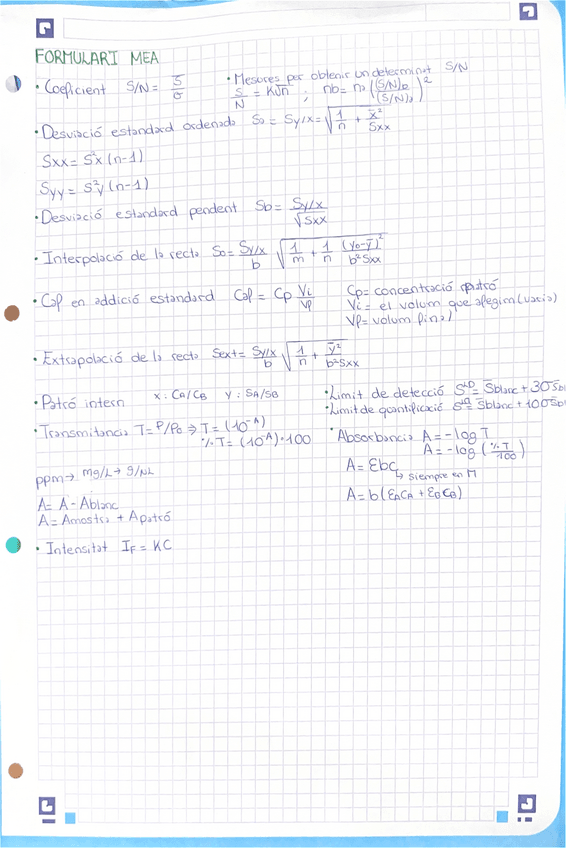 FORMULARI MEA
• Coeficient S/N = S̄/σ
• Mesures per obtenir un determinat S/N
S/N = K√n ; nb = na ((S/N)b/(S/N)a)²
• Desviació estandard ordenada Sa = Sy/x = √(1/n + x̄²/Sxx)
Sxx = S²x (n-1)
Syy = S²y (n-1)
• Desviació estandard pendent Sb = Sy/x / √Sxx
• Interpolació de la recta So = Sy/x / b √(1/m + 1/n (yo-ȳ)²/b²Sxx)
• Cap en addició estandard Cap = Cp Vi/Vp
Cp = concentració patró
Vi = el volum que afegim (varia)
Vp = volum final
• Extrapolació de la recta Sext = Sy/x / b √(1/n + ȳ²/b²Sxx)
• Patró intern x: CA/CB y: SA/SB
• Limit de detecció S^LD = S̄blanc + 3σSbl
• Limit de quantificació S^LQ = S̄blanc + 10σSbl
• Transmitancia T = P/Po ⇒ T = (10^-A)
%T = (10^-A) · 100
• Absorbancia A = -log T
A = -log (%T/100)
A = εbc
↳ siempre en M
A = b(εACA + εBCB)
ppm → mg/L →
A = A - Ablanc
A = Amostra + Apatró
• Intensitat IF = KC